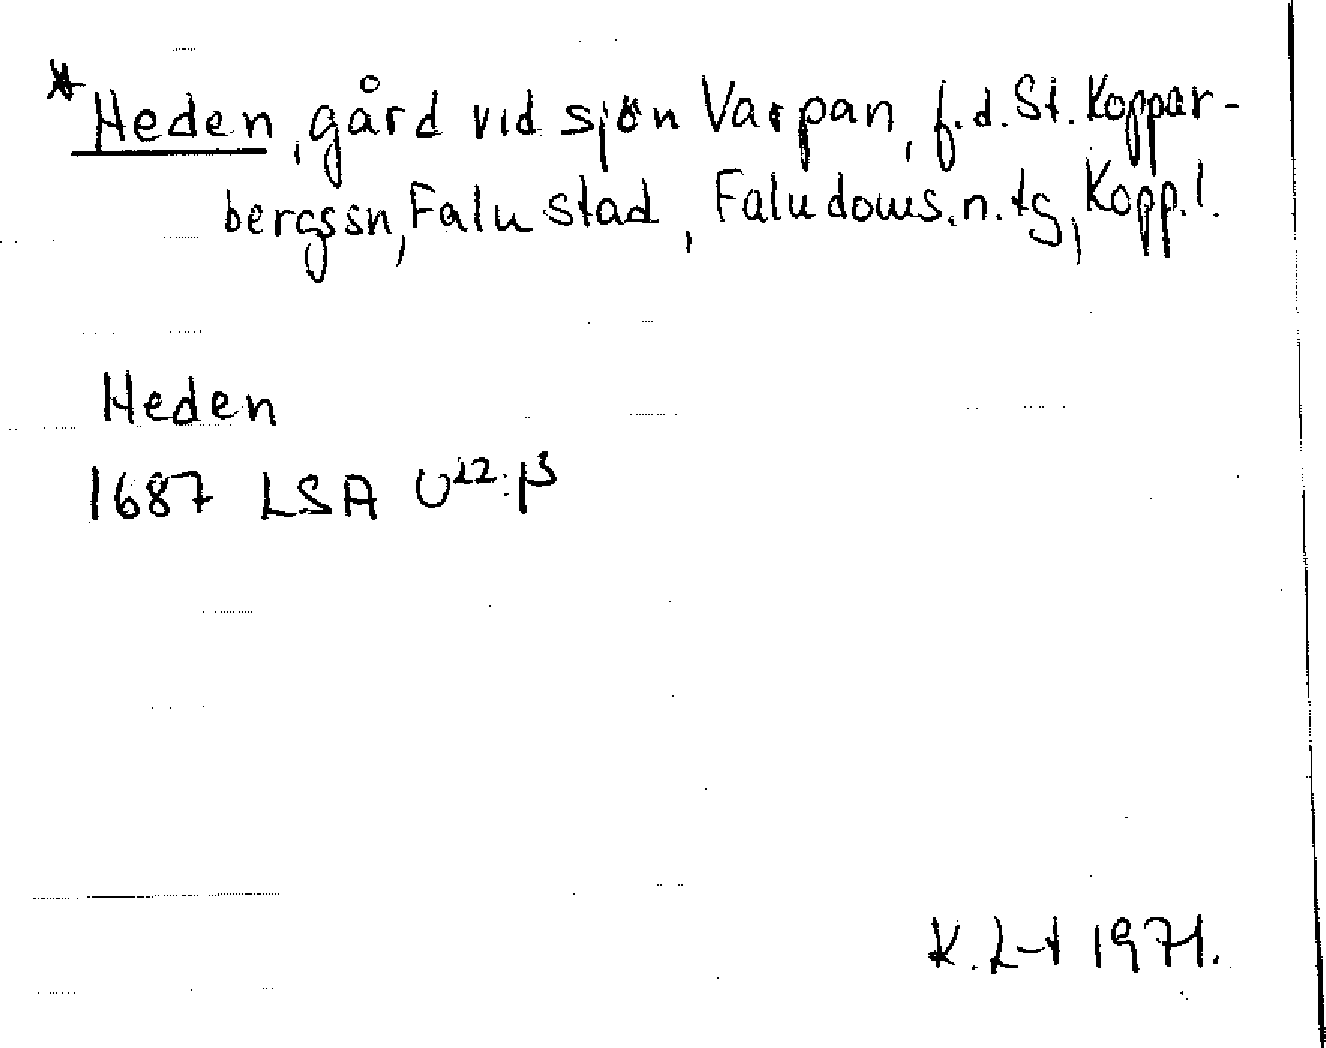 *Heden, gård vid sjön Varpan, f.d. St. Koppar-
bergs sn, Falu stad, Falu doms.n.tg, Kopp.l.
Heden
1687 LSA U²²:β
K.L-t 1971.